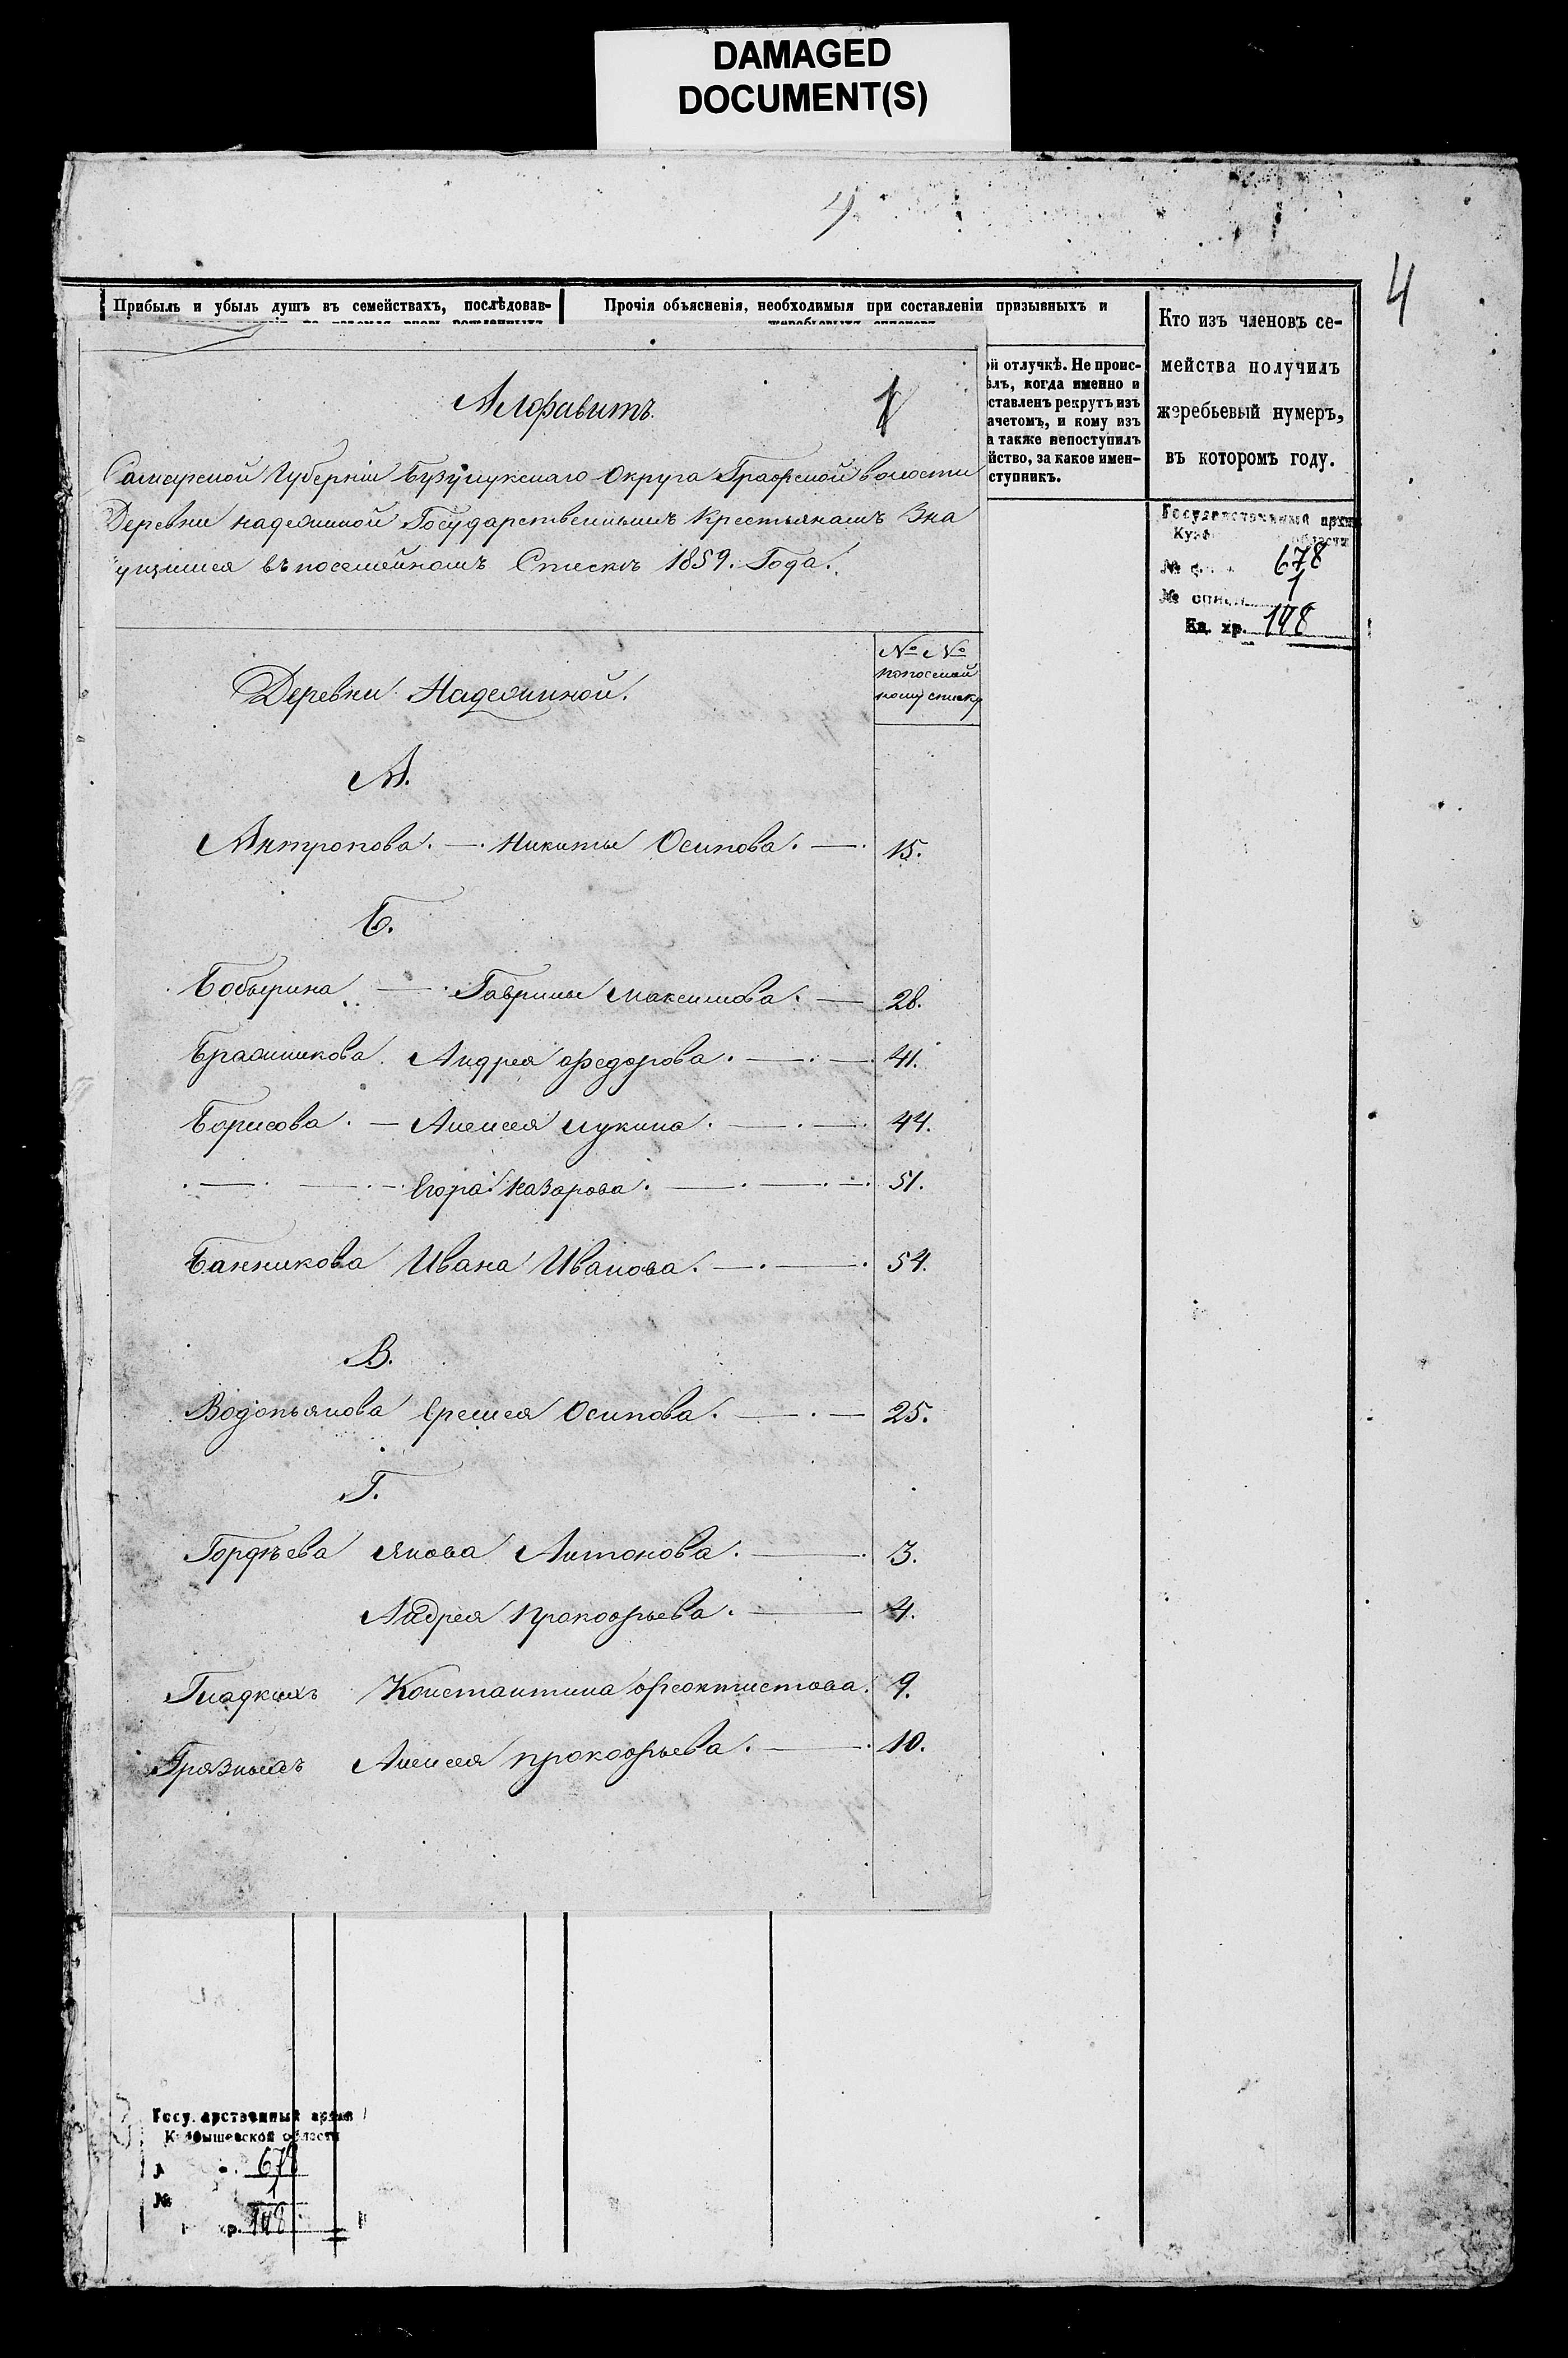 DAMAGED
DOCUMENT(S)
4
Прибыль и убыль душъ въ семействахъ, послѣдовав-
Прочія объясненія, необходимыя при составленіи призывныхъ и
жеребьевыхъ списковъ
Кто изъ членовъ се-
мейства получилъ
жеребьевый нумеръ,
въ которомъ году.
ой отлучкѣ. Не проис-
ѣлъ, когда именно и
ставленъ рекрутъ изъ
ачетомъ, и кому изъ
а также непоступилъ
йство, за какое имен-
ступникъ.
Государственный архив
678
1
Ед. хр. 148
Алфавитъ.
1
Самарской Губерніи Бузулукскаго Округа Графской волости
Деревни Надежиной Государственнымъ Крестьянамъ Зна
чущимся въ посемейномъ Списке 1859. Года.
Деревни Надежиной.
№ №
попосемей
ному списку
А.
Антропова. — Никиты Осипова. — 15.
Б.
Бобырина — Гаврилы Максимова. — 28.
Бражникова. Андрея Федорова. — 41.
Борисова. — Алексея Лукина. — 44.
— Егора Назарова. — 51.
Банникова Ивана Иванова. — 54.
В.
Водопьянова Еремея Осипова. — 25.
Г.
Гордѣева Якова Антонова. — 3.
Андрея Прокофьева. — 4.
Гладкихъ Константина Феоктистова. 9.
Грязныхъ Алексея Прокофьева. — 10.
Государственный архив
Куйбышевской области
678
1
№
148